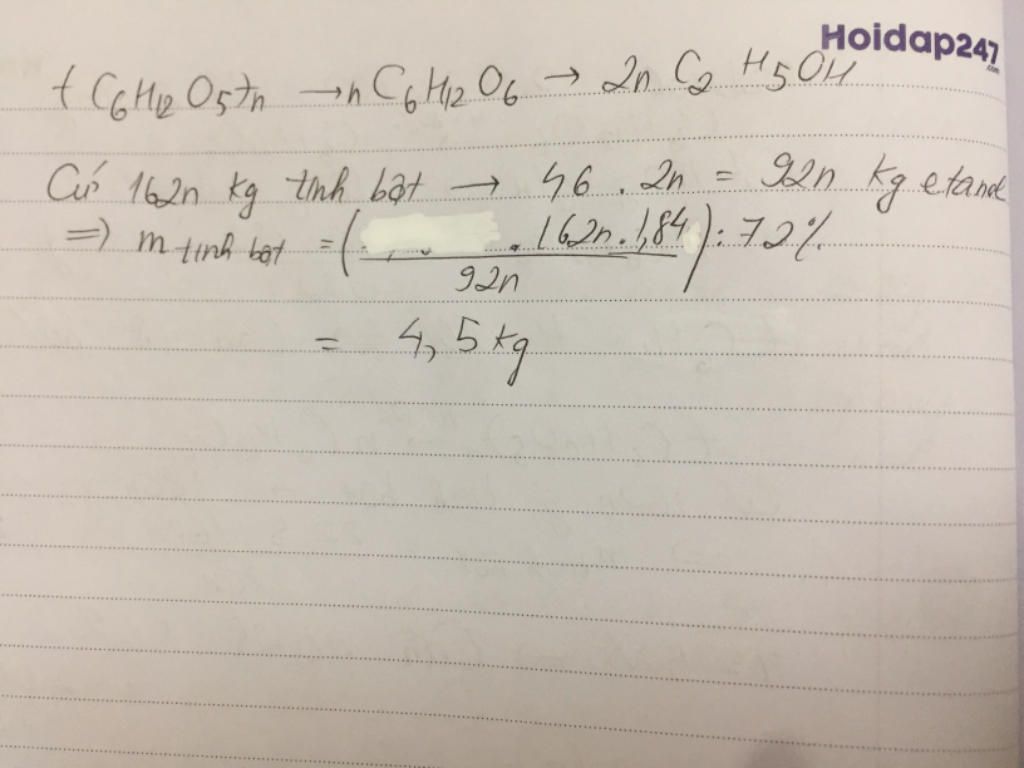 Hoidap247
.com
(C6H12O5)n → nC6H12O6 → 2n C2H5OH
Cứ 162n kg tinh bột → 46 . 2n = 92n kg etanol
=> m tinh bột = ( . 162n . 1,84 / 92n ) : 72%
= 4,5 kg